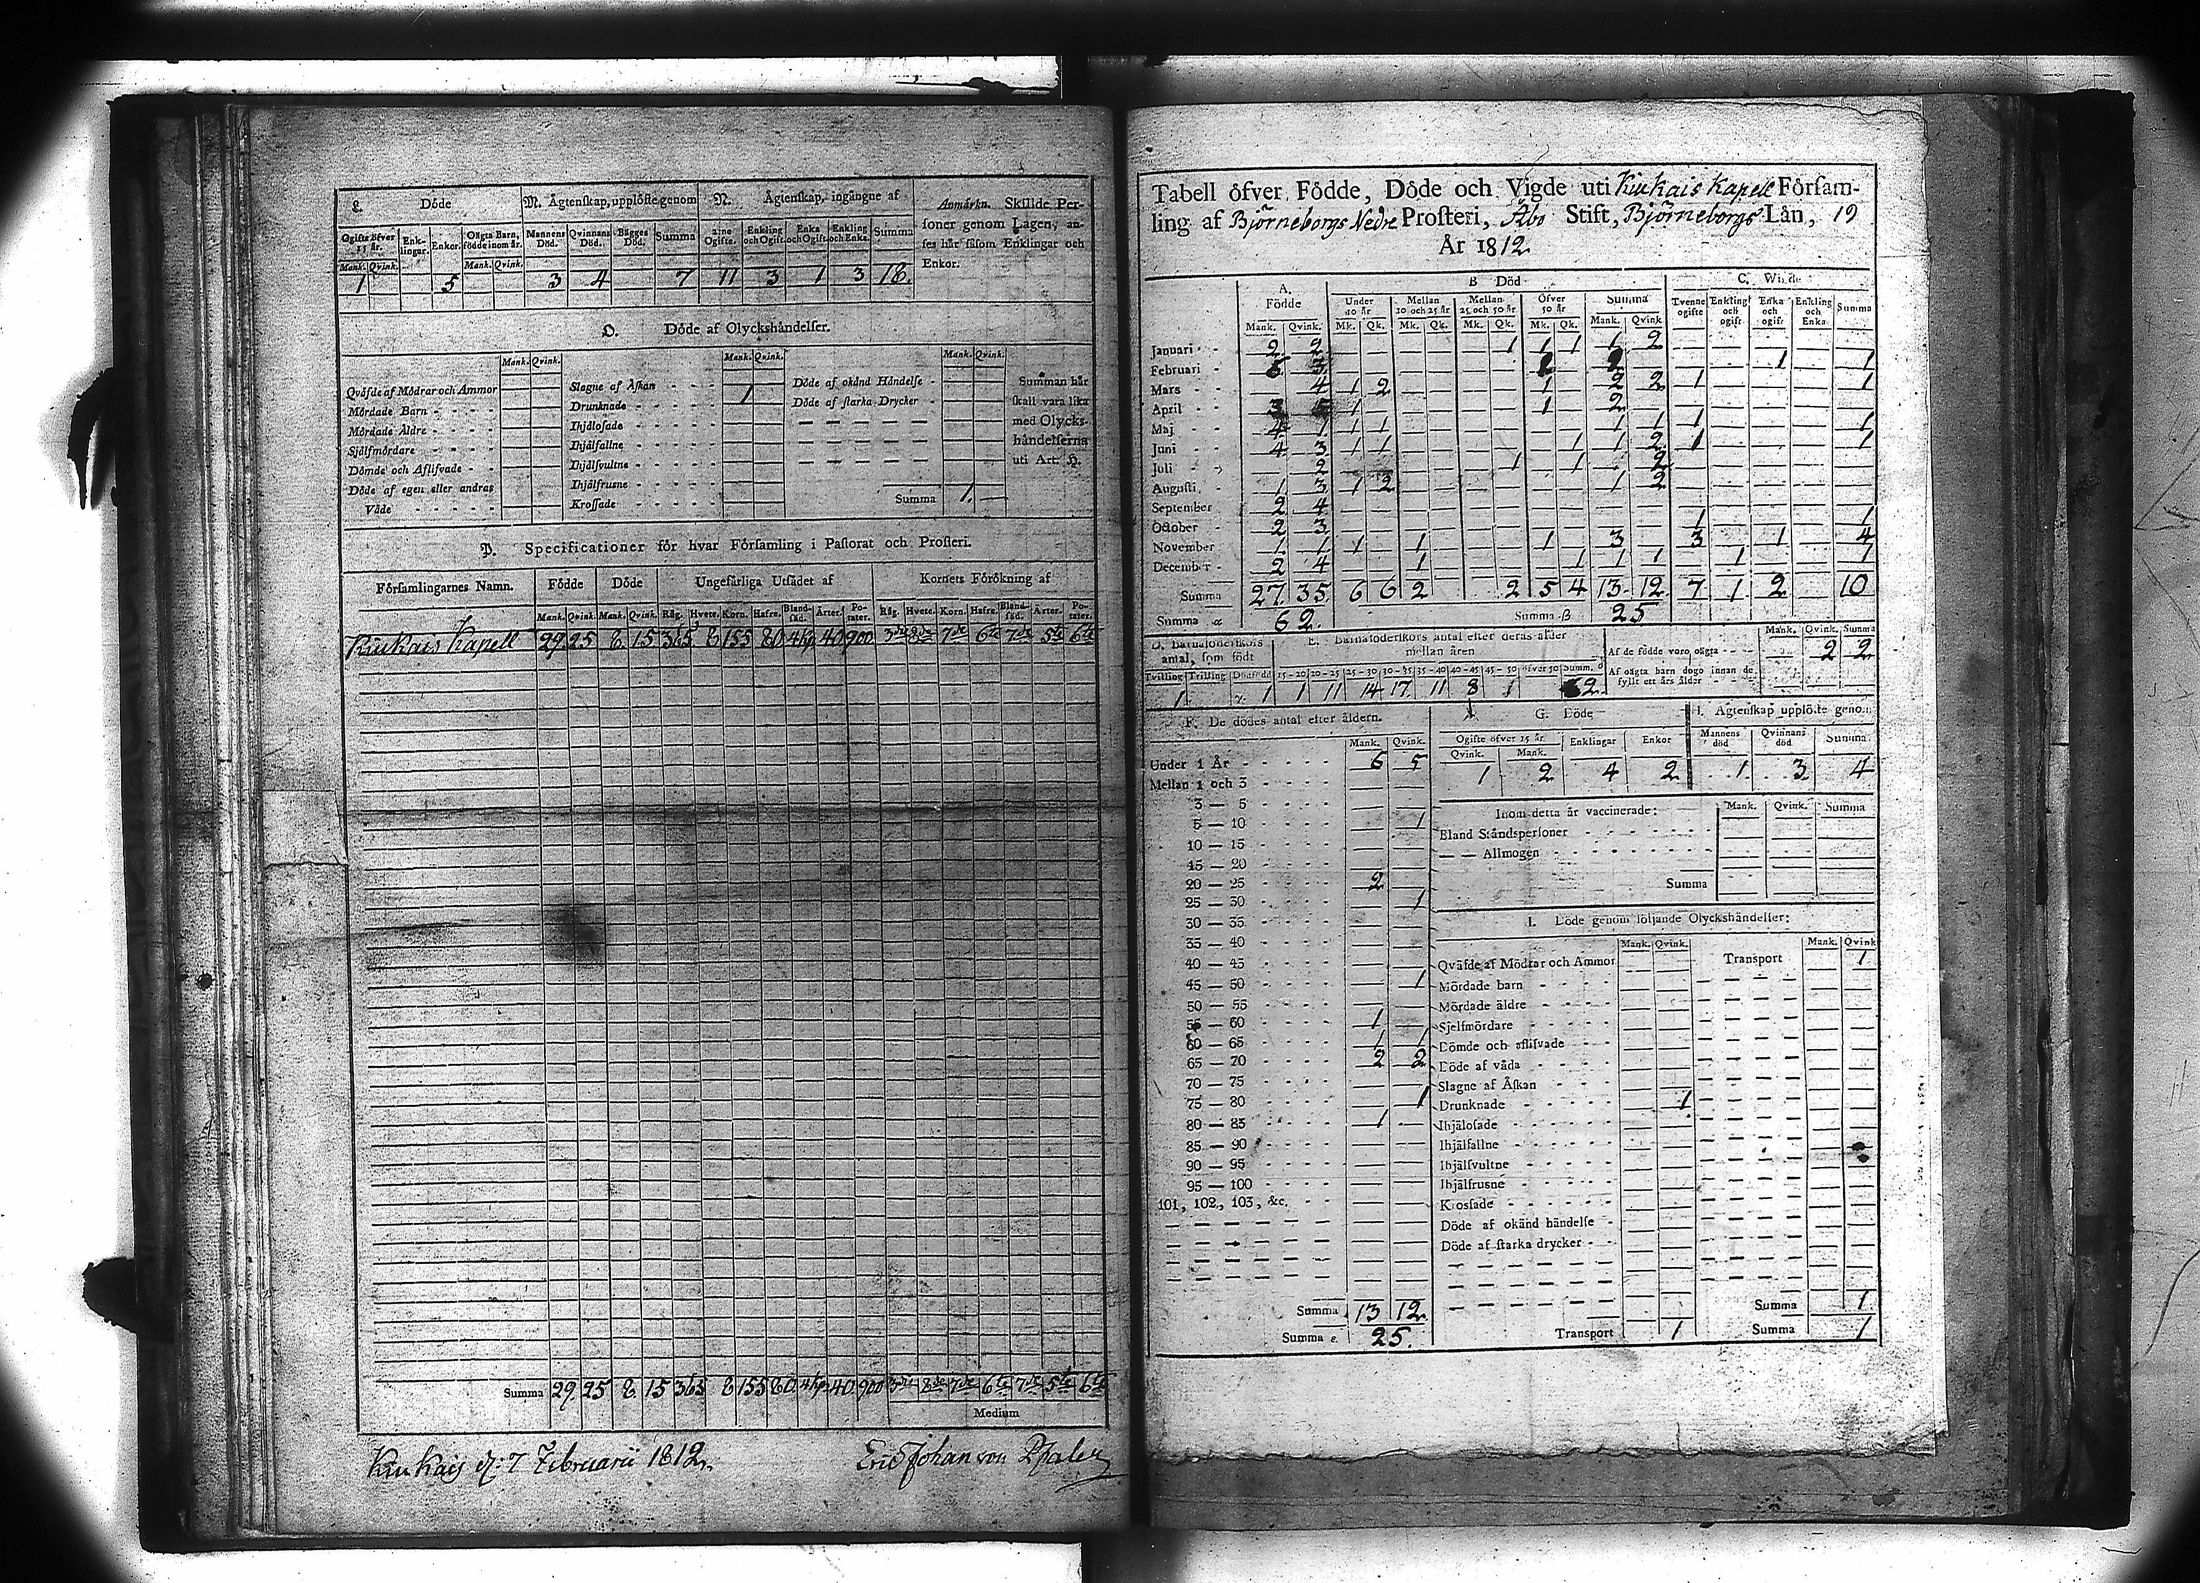 L. Döde
M. Ägtenskap, upplöste genom
N. Ägtenskap, ingångne af
Anmärkn. Skillde Per-
soner genom Lagen, an-
ses här såsom Enklingar och
Enkor.
Ogifte öfver 15 år.
Enk-lingar.
Enkor.
Oägta Barn, födde inom år.
Mannens Död.
Qvinnans Död.
Bägges Död.
Summa
Ogifte.
Enkling och Ogift.
Enka och Ogift
Enkling och Enka.
Summa
Mank. Qvink. Mank. Qvink.
1 5 3 4 7 11 3 1 3 18.
O. Döde af Olyckshändelser.
Mank. Qvink. Mank. Qvink. Mank. Qvink.
Qväfde af Mödrar och Ammor
Mördade Barn
Mördade Äldre
Sjelfmördare
Dömde och Aflifvade
Döde af egen eller andras
Våde
Slagne af Åskan
Drunknade 1
Ihjälosade
Ihjälfallne
Ihjälsvultne
Ihjälfrusne
Krossade
Döde af okänd Händelse
Döde af starka Drycker
Summa 1.
Summan här
skall vara lika
med Olycks-
händelserna
uti Art. H.
P. Specificationer för hvar Församling i Pastorat och Prosteri.
Församlingarnes Namn. Födde Döde Ungefärliga Utsädet af Kornets Förökning af
Mank. Qvink. Mank. Qvink. Råg. Hvete. Korn. Hafre. Bland-säd. Ärter. Po-tater. Råg. Hvete. Korn. Hafre. Bland-säd. Ärter. Po-tater.
Kiukais Kapell 29 25 8 15 365 8 155 80 40 900
Summa 29 25 8 15 365 8 155 80 40 900
Medium
Kiukais d: 7 Februarii 1812.
Eric Johan von Pfaler
Tabell öfver Födde, Döde och Vigde uti Kiukais Kapell Försam-
ling af Björneborgs Nedre Prosteri, Åbo Stift, Björneborgs Län, 19
År 1812
A. Födde
B Död
Under 10 år
Mellan 10 och 25 år
Mellan 25 och 50 år
Öfver 50 år
Summa
Tvenne ogifte
Enkling och ogift
Enka och ogift
Enkling och Enka
Summa
Mank. Qvink. Mk. Qk. Mk. Qk. Mk. Qk. Mk. Qk. Mank. Qvink
Januari 2 2 1 1 1 1 2
Februari 2 1 1
Mars 4 1 2 1 2 2 1 1
April 3 1 1 2
Maj 4 1 1 1 1 1 1 1
Juni 4 3 1 1 1 1 2 1 1
Juli 2 1 1 2
Augusti 1 3 1 2 1 2
September 2 4
October 2 3 1 1
November 1 1 1 1 1 3 3 1 4
December 2 4 1 1 1 1 1 1
Summa 27. 35. 6 6 2 2 5 4 13 12. 7 1 2 10
Summa α 62. Summa β 25
D. Barnaföderskors antal, som födt
E. Barnaföderskors antal efter deras ålder mellan åren
Tvilling Trilling Dödfödd 15-20 20-25 25-30 30-35 35-40 40-45 45-50 öfver 50 Summ.
1 1 1 11 14 17 11 8 1 62
Mank. Qvink. Summa
Af de födde voro oägta 2 2
Af oägta barn dogo innan de
fyllt ett års ålder
F. De dödes antal efter åldern.
Mank. Qvink.
Under 1 År 6 5
Mellan 1 och 3
3 — 5
5 — 10 1
10 — 15
15 — 20
20 — 25 2
25 — 30 1
30 — 35
35 — 40
40 — 45
45 — 50 1
50 — 55
55 — 60 1
60 — 65 1 1
65 — 70 2 2
70 — 75
75 — 80 1
80 — 85 1
85 — 90
90 — 95
95 — 100
101, 102, 103, &c.
Summa 13 12.
Summa ε. 25.
G. Döde
Ogifte öfver 15 år Enklingar Enkor
Qvink. Mank.
1 2 4 2
H. Ägtenskap upplöste genom
Mannens död Qvinnans död Summa
1 3 4
Inom detta år vaccinerade: Mank. Qvink. Summa
Bland Ståndspersoner
— — Allmogen
Summa
I. Döde genom följande Olyckshändelser:
Mank. Qvink. Mank. Qvink
Qväfde af Mödrar och Ammor Transport 1
Mördade barn
Mördade äldre
Sjelfmördare
Dömde och aflifvade
Döde af våda
Slagne af Åskan
Drunknade 1
Ihjälosade
Ihjälfallne
Ihjälsvultne
Ihjälfrusne
Krossade
Döde af okänd händelse
Döde af starka drycker
Summa 1
Transport 1 Summa 1